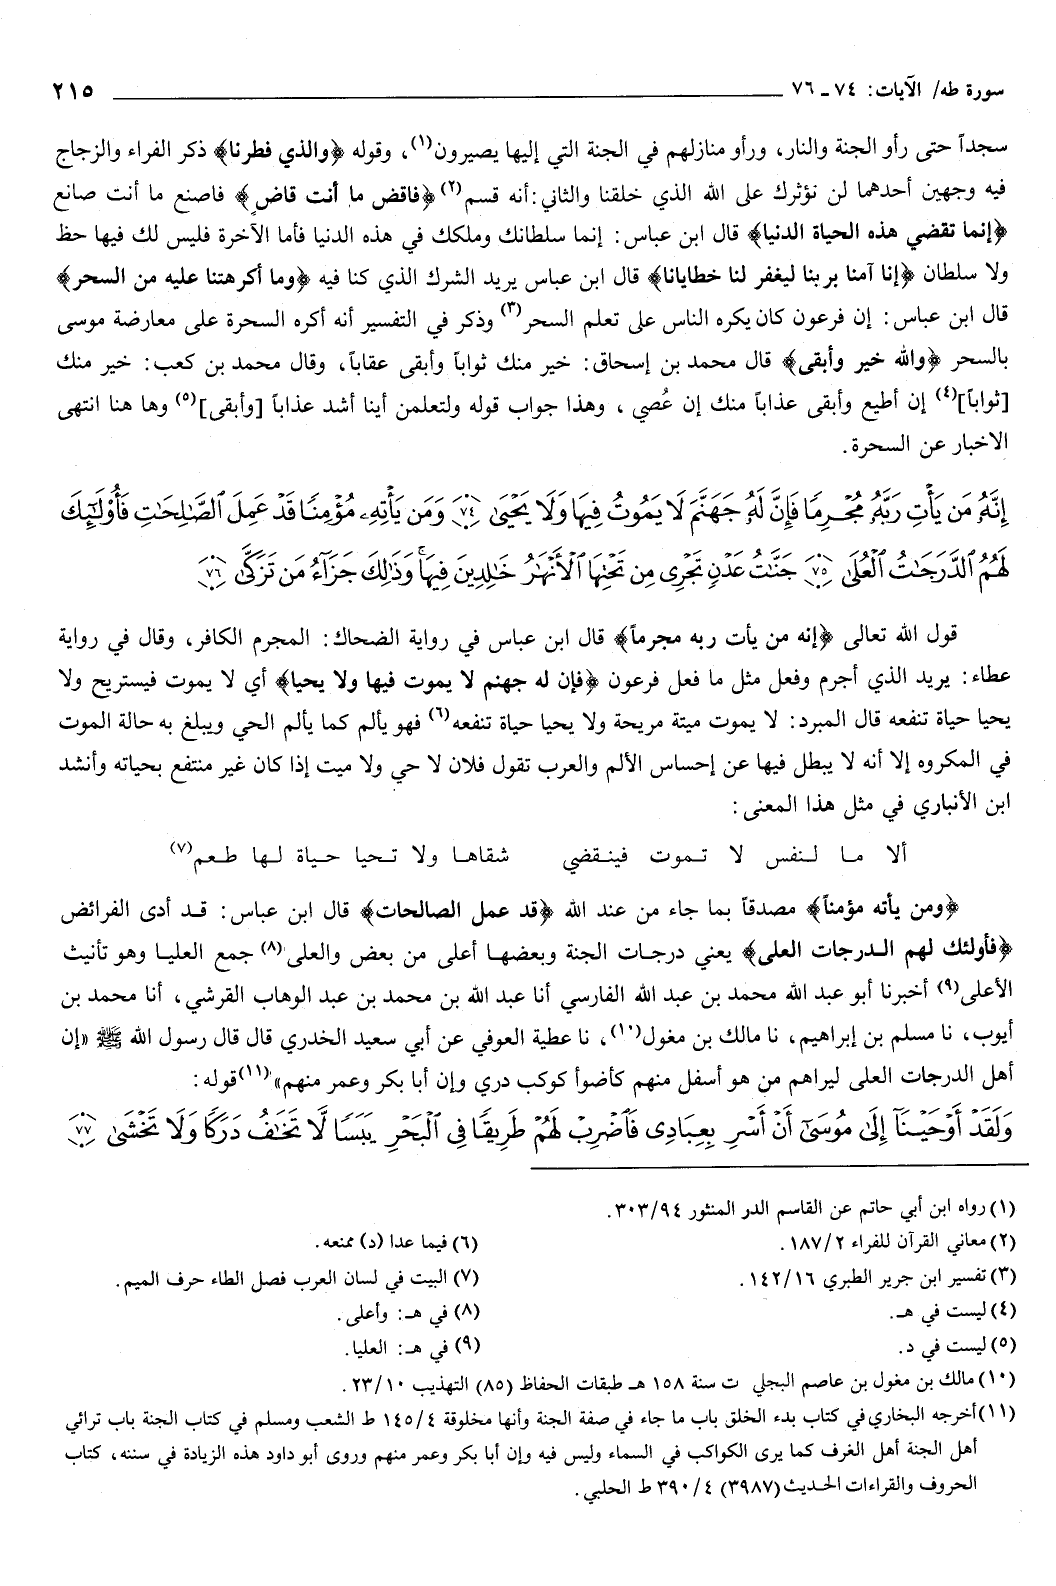 سورة طه/ الآيات: ٧٤ ـ ٧٦ ٢١٥
سجداً حتى رأو الجنة والنار، ورأو منازلهم في الجنة التي إليها يصيرون(١)، وقوله ﴿والذي فطرنا﴾ ذكر الفراء والزجاج
فيه وجهين أحدهما لن نؤثرك على الله الذي خلقنا والثاني: أنه قسم(٢) ﴿فاقض ما أنت قاضٍ﴾ فاصنع ما أنت صانع
﴿إنما تقضي هذه الحياة الدنيا﴾ قال ابن عباس: إنما سلطانك وملكك في هذه الدنيا فأما الآخرة فليس لك فيها حظ
ولا سلطان ﴿إنا آمنا بربنا ليغفر لنا خطايانا﴾ قال ابن عباس يريد الشرك الذي كنا فيه ﴿وما أكرهتنا عليه من السحر﴾
قال ابن عباس: إن فرعون كان يكره الناس على تعلم السحر(٣) وذكر في التفسير أنه أكره السحرة على معارضة موسى
بالسحر ﴿والله خير وأبقى﴾ قال محمد بن إسحاق: خير منك ثواباً وأبقى عقاباً، وقال محمد بن كعب: خير منك
[ثواباً](٤) إن أطيع وأبقى عذاباً منك إن عُصي، وهذا جواب قوله ولتعلمن أينا أشد عذاباً [وأبقى](٥) وها هنا انتهى
الاخبار عن السحرة.
إِنَّهُ مَن يَأْتِ رَبَّهُ مُجْرِمًا فَإِنَّ لَهُ جَهَنَّمَ لَا يَمُوتُ فِيهَا وَلَا يَحْيَىٰ ﴿٧٤﴾ وَمَن يَأْتِهِ مُؤْمِنًا قَدْ عَمِلَ الصَّالِحَاتِ فَأُوْلَٰئِكَ
لَهُمُ الدَّرَجَاتُ الْعُلَىٰ ﴿٧٥﴾ جَنَّاتُ عَدْنٍ تَجْرِي مِن تَحْتِهَا الْأَنْهَارُ خَالِدِينَ فِيهَا وَذَٰلِكَ جَزَاءُ مَن تَزَكَّىٰ ﴿٧٦﴾
قول الله تعالى ﴿إنه من يأت ربه مجرماً﴾ قال ابن عباس في رواية الضحاك: المجرم الكافر، وقال في رواية
عطاء: يريد الذي أجرم وفعل مثل ما فعل فرعون ﴿فإن له جهنم لا يموت فيها ولا يحيا﴾ أي لا يموت فيستريح ولا
يحيا حياة تنفعه قال المبرد: لا يموت ميتة مريحة ولا يحيا حياة تنفعه(٦) فهو يألم كما يألم الحي ويبلغ به حالة الموت
في المكروه إلا أنه لا يبطل فيها عن إحساس الألم والعرب تقول فلان لا حي ولا ميت إذا كان غير منتفع بحياته وأنشد
ابن الأنباري في مثل هذا المعنى:
ألا ما لنفس لا تموت فينقضي شقاها ولا تحيا حياة لها طعم(٧)
﴿ومن يأته مؤمناً﴾ مصدقاً بما جاء من عند الله ﴿قد عمل الصالحات﴾ قال ابن عباس: قد أدى الفرائض
﴿فأولئك لهم الدرجات العلى﴾ يعني درجات الجنة وبعضها أعلى من بعض والعلى(٨) جمع العليا وهو تأنيث
الأعلى(٩) أخبرنا أبو عبد الله محمد بن عبد الله الفارسي أنا عبد الله بن محمد بن عبد الوهاب القرشي، أنا محمد بن
أيوب، نا مسلم بن إبراهيم، نا مالك بن مغول(١٠)، نا عطية العوفي عن أبي سعيد الخدري قال قال رسول الله ﷺ «إن
أهل الدرجات العلى ليراهم من هو أسفل منهم كأضوأ كوكب دري وإن أبا بكر وعمر منهم»(١١) قوله:
وَلَقَدْ أَوْحَيْنَا إِلَىٰ مُوسَىٰ أَنْ أَسْرِ بِعِبَادِي فَاضْرِبْ لَهُمْ طَرِيقًا فِي الْبَحْرِ يَبَسًا لَّا تَخَافُ دَرَكًا وَلَا تَخْشَىٰ ﴿٧٧﴾
(١) رواه ابن أبي حاتم عن القاسم الدر المنثور ٣٠٣/٩٤.
(٢) معاني القرآن للفراء ١٨٧/٢.
(٣) تفسير ابن جرير الطبري ١٤٢/١٦.
(٤) ليست في هـ.
(٥) ليست في د.
(٦) فيما عدا (د) ممنعه.
(٧) البيت في لسان العرب فصل الطاء حرف الميم.
(٨) في هـ: وأعلى.
(٩) في هـ: العليا.
(١٠) مالك بن مغول بن عاصم البجلي ت سنة ١٥٨ هـ طبقات الحفاظ (٨٥) التهذيب ٢٣/١٠.
(١١) أخرجه البخاري في كتاب بدء الخلق باب ما جاء في صفة الجنة وأنها مخلوقة ١٤٥/٤ ط الشعب ومسلم في كتاب الجنة باب ترائي
أهل الجنة أهل الغرف كما يرى الكواكب في السماء وليس فيه وإن أبا بكر وعمر منهم وروى أبو داود هذه الزيادة في سننه، كتاب
الحروف والقراءات الحديث (٣٩٨٧) ٣٩٠/٤ ط الحلبي.